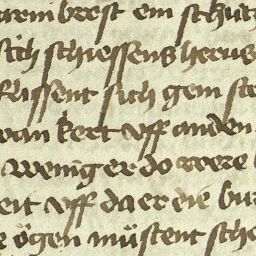 brest ein schutz
sich schiessens herus
flissent sich gein
kert vff anden
wenig er do were
vff da er die bur
ögen müstent sche